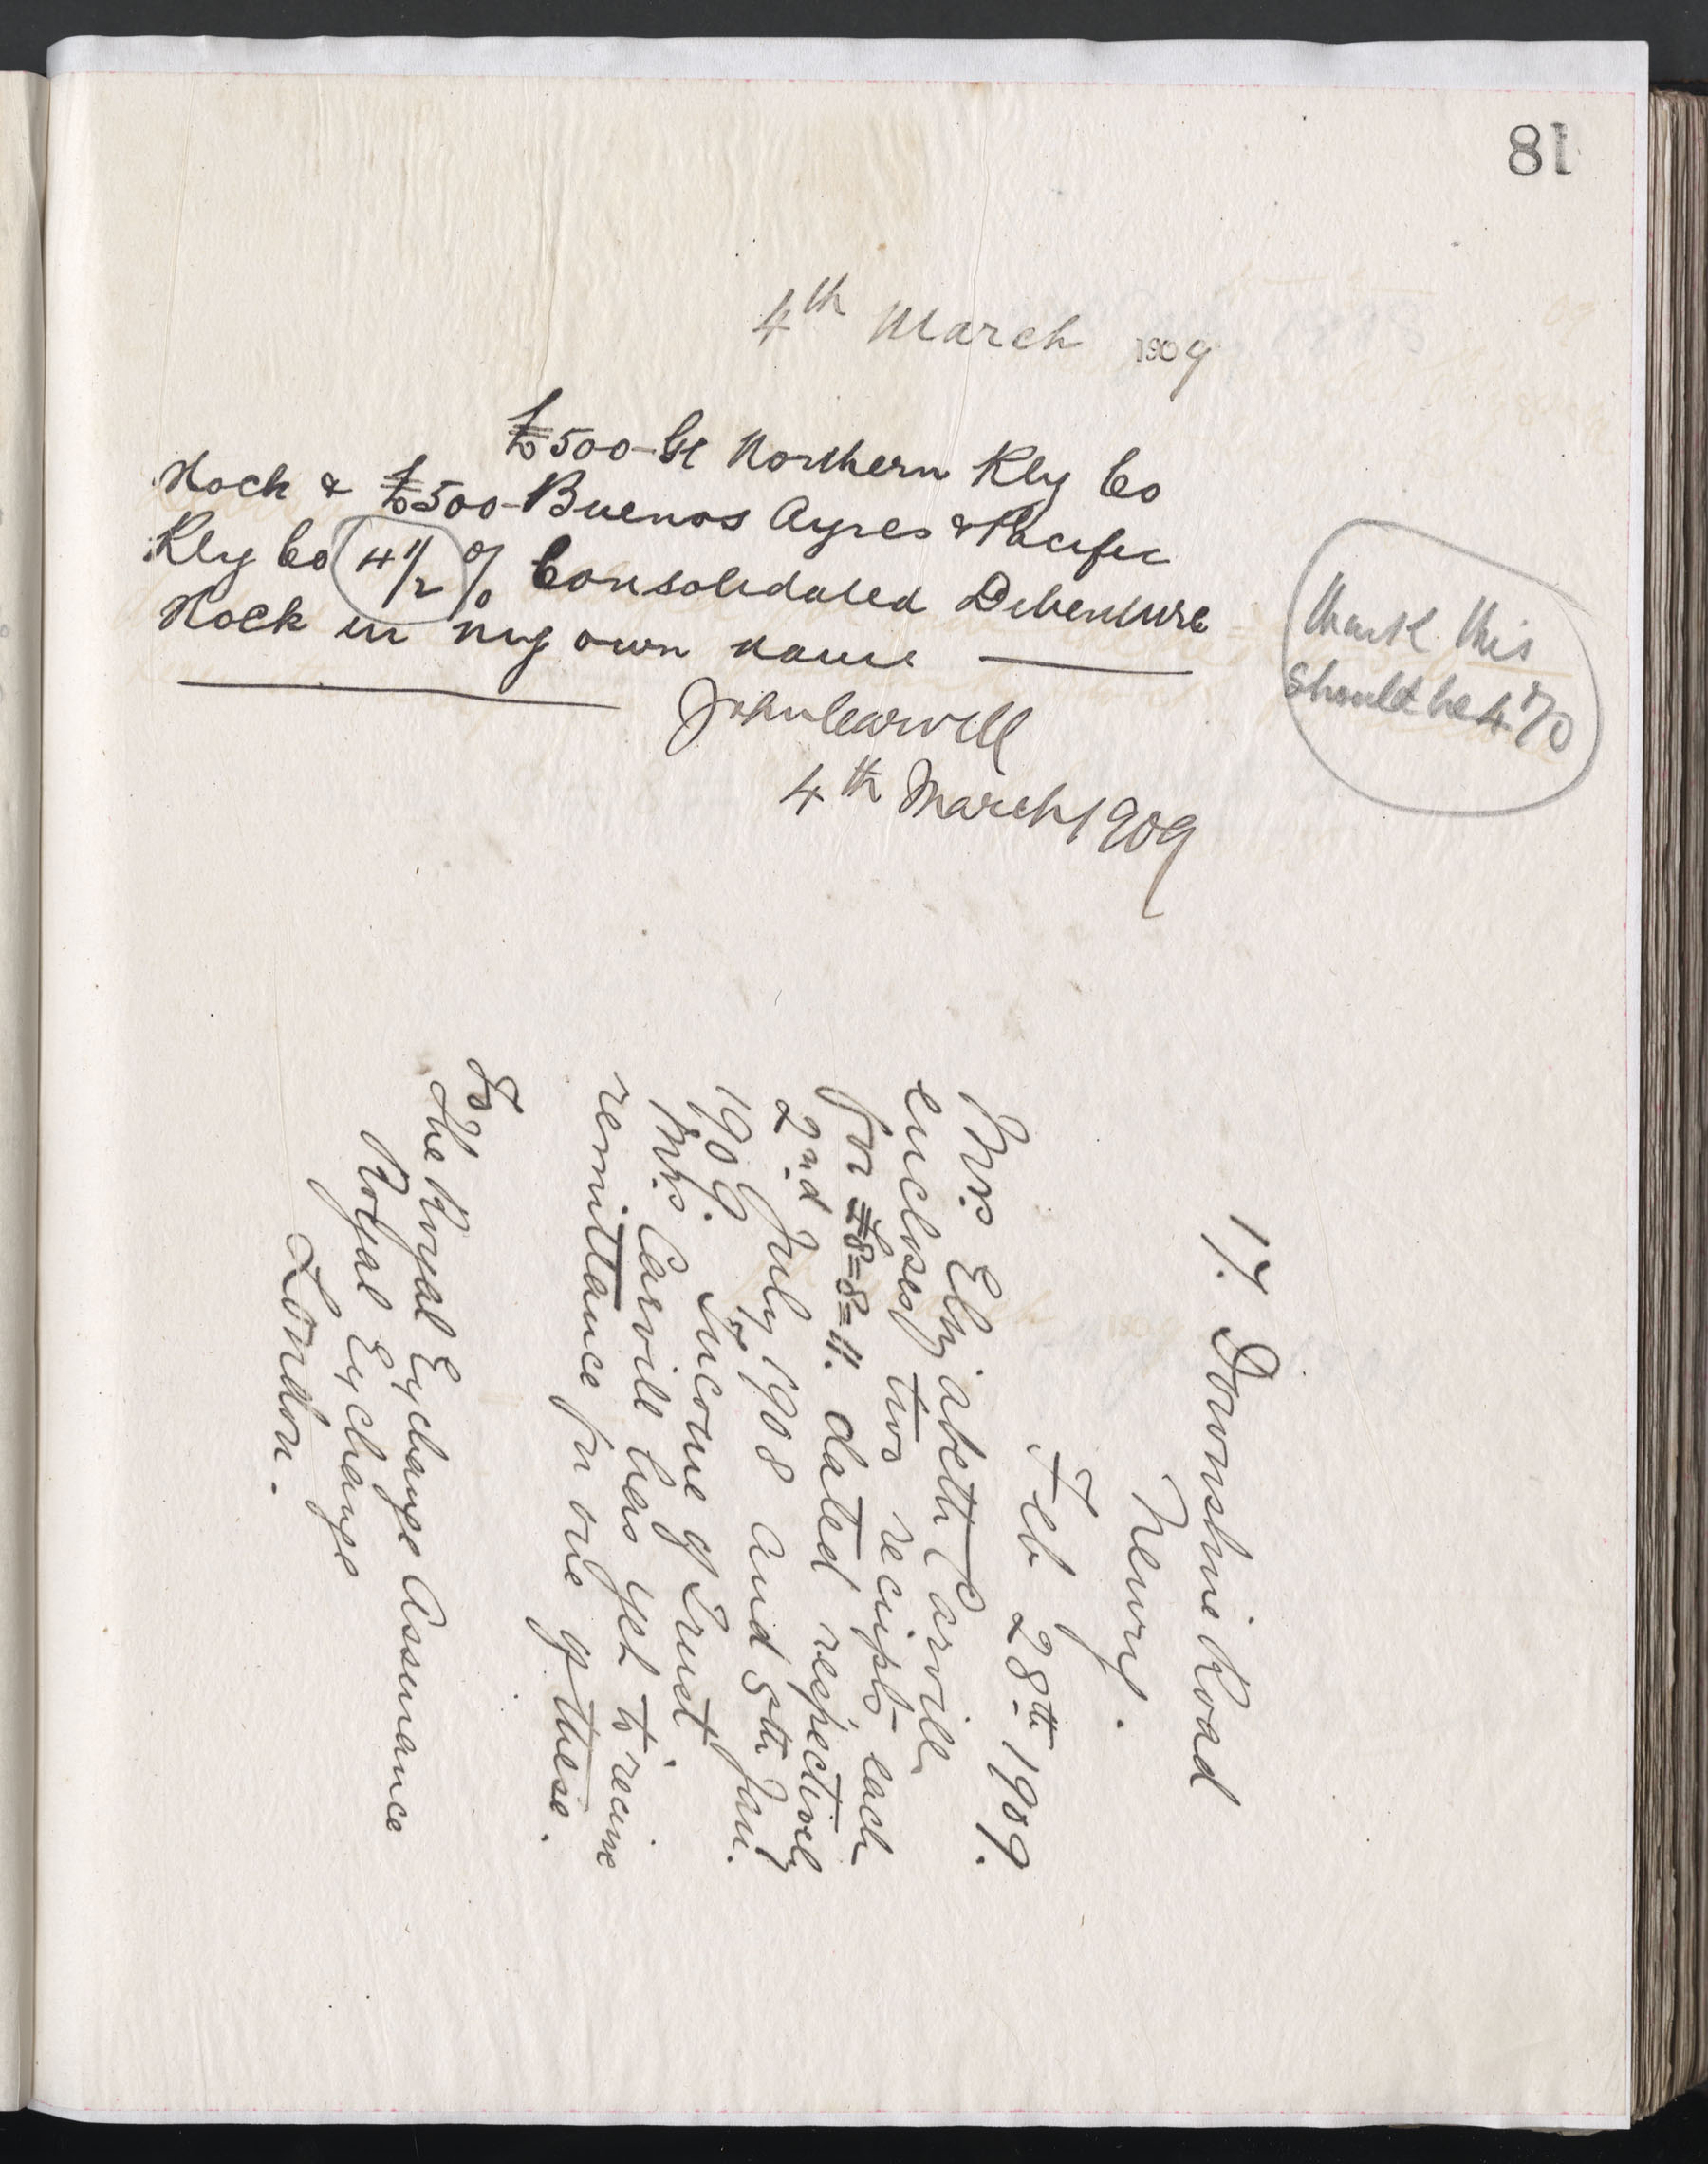 81
4th March 1909
£500-Gt Northern Rly Co
Stock & £500-Buenos Ayres & Pacific
Rly Co 4 1/2 % Consolidated Debenture
Stock in my own name
think this
should be 4%
John Carvill
4th March 1909
17. Downshire Road
Newry.
Feb 28th 1909.
Mrs Elizabeth Carvill
encloses two reciepts each
for £8=8=11. dated respectively
2nd July 1908 and 5th Jan.
1909. Income of Trust.
Mrs. Carvill has yet to recieve
remittance for one of these.
To
The Royal Exchange Assurance
Royal Exchange
London.